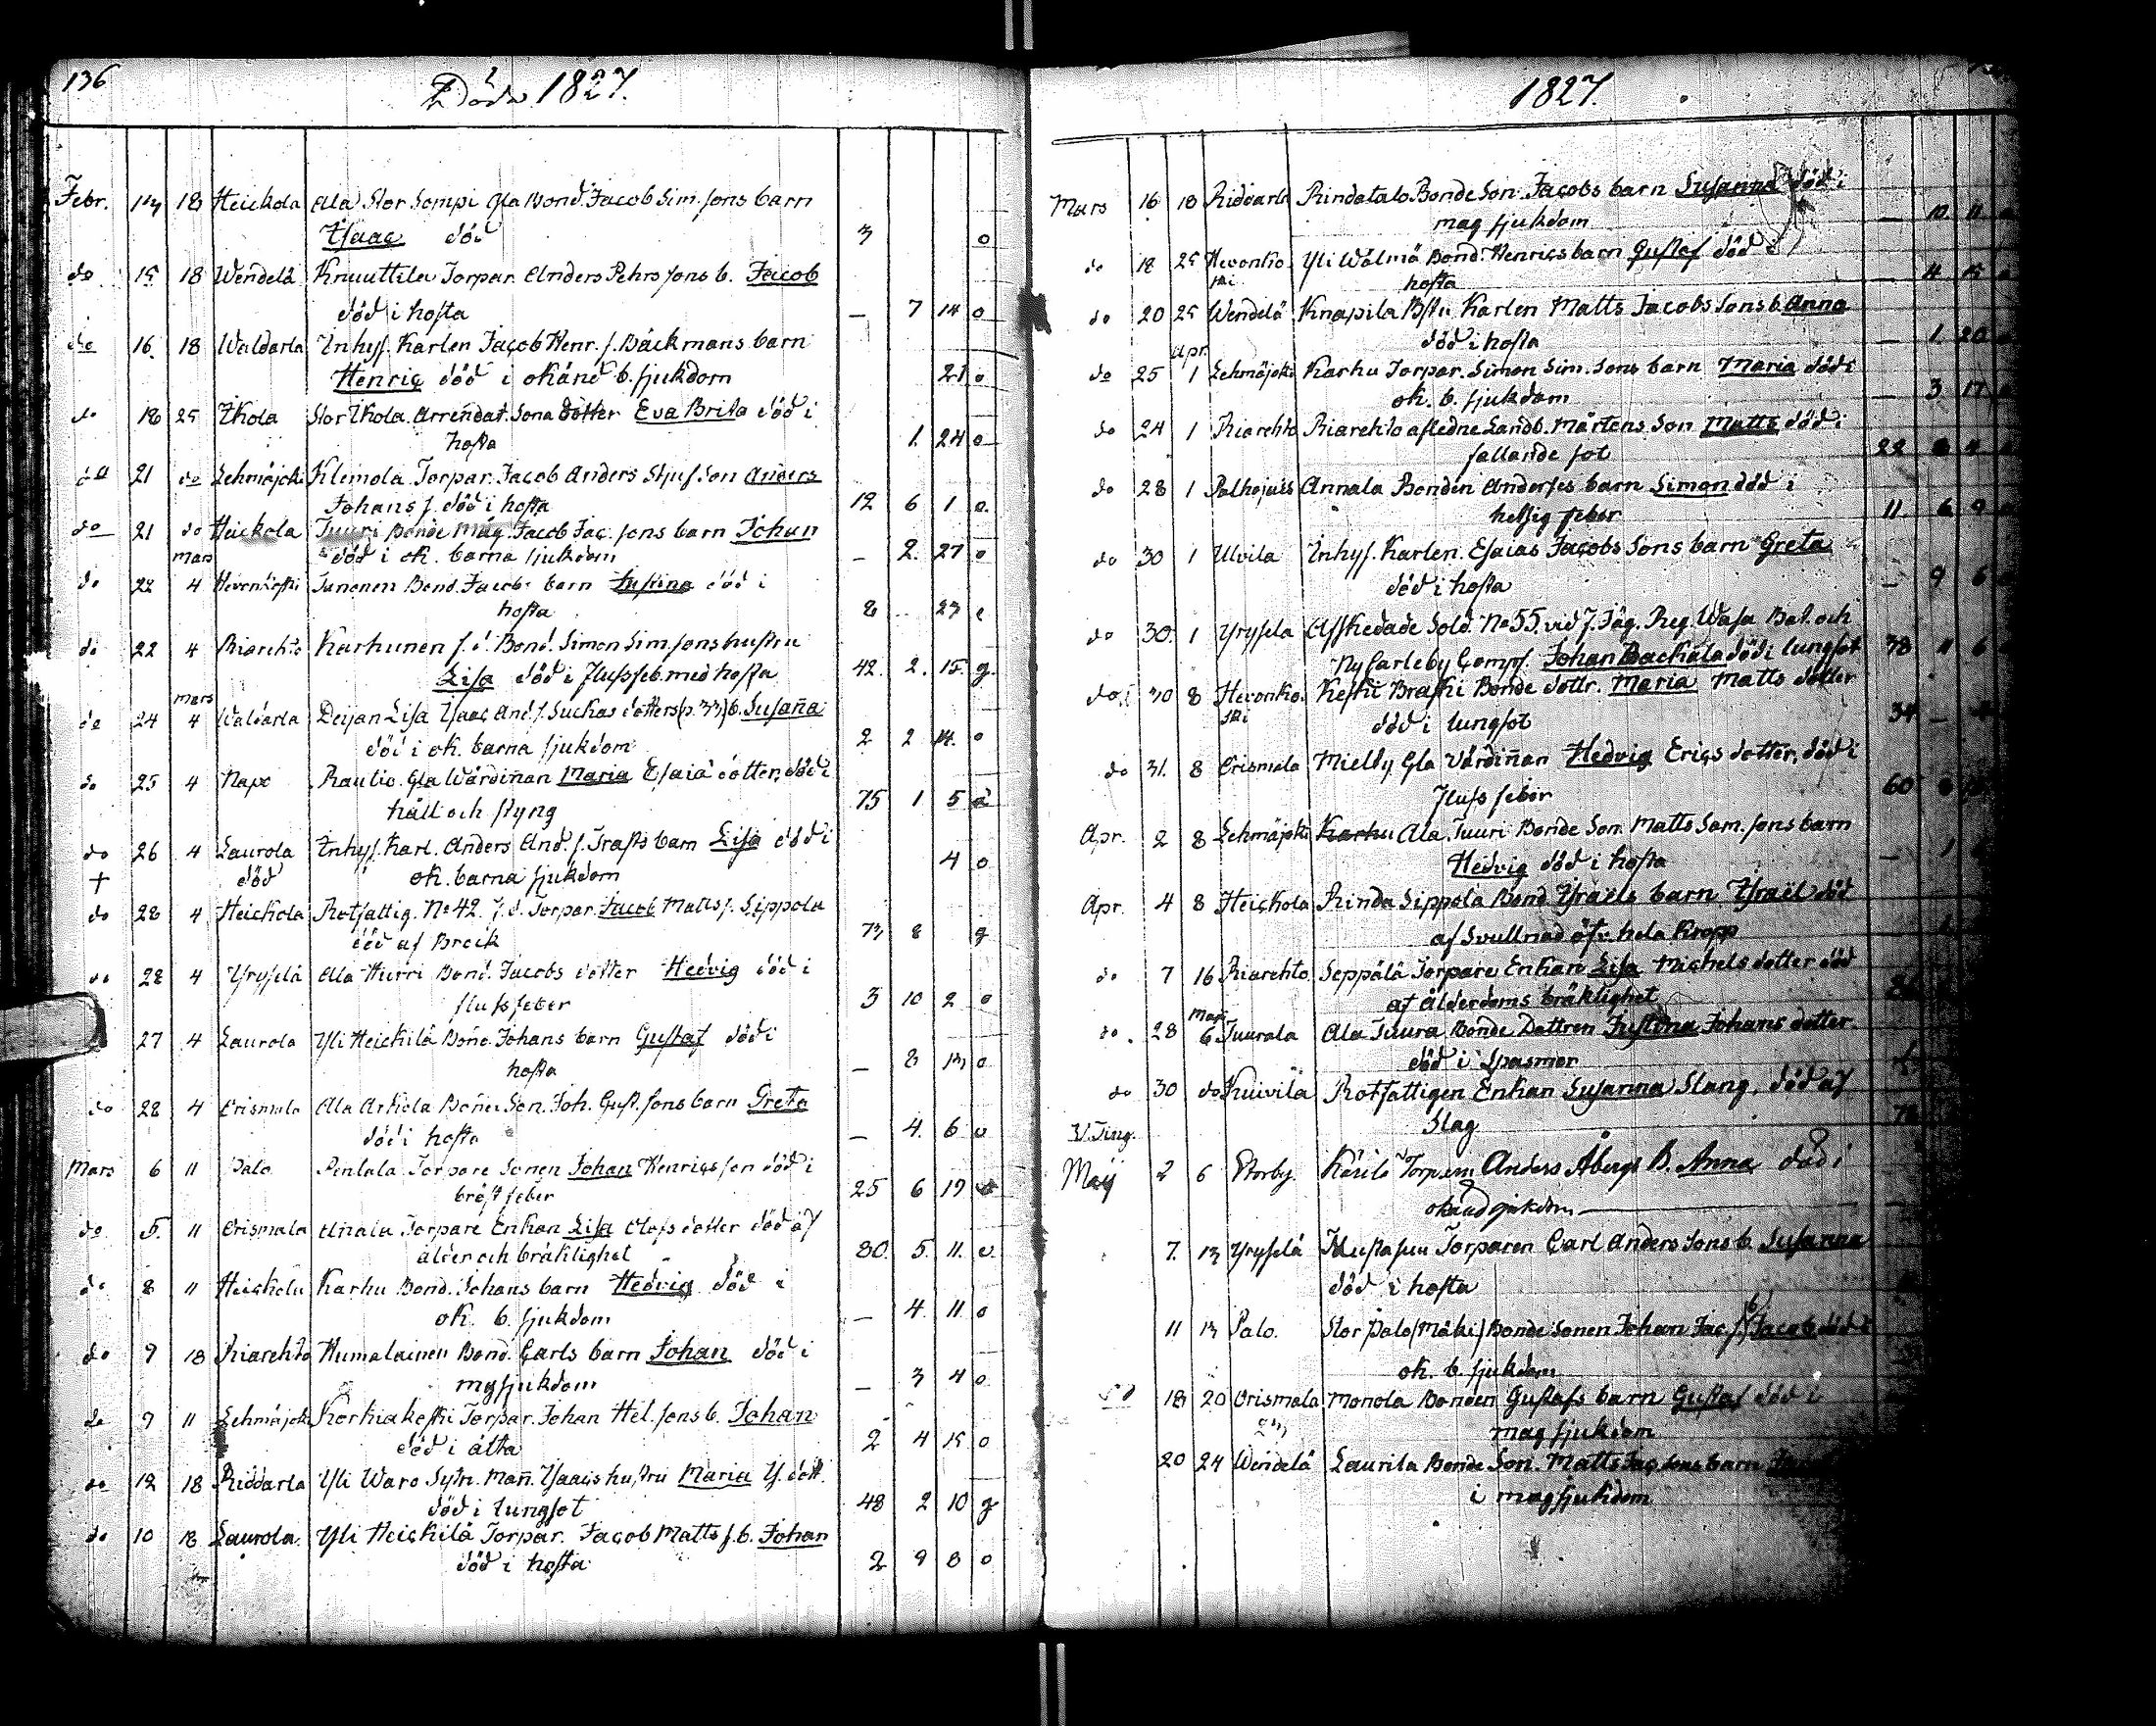 136
Döde 1827.
Febr. 14 18 Heickola Ala Stor Sompi Gla Bond. Jacob Sim. sons barn
Isaac död 3 o
do 15 18 Wendelä Knuuttila Torpar. Anders Pehrs sons b. Jacob
död i hosta — 7 14 o
do 16 18 Waldarla Inhys. Karlen Jacob Henr. s. Bäckmans barn
Henric död i okänd b. sjukdom 21 o
do 18 25 Ikola Stor Ikola Arrendat. Sona dotter Eva Brita död i
hosta 1. 24 o
do 21 do Lehmäjoki Klemola Torpar. Jacob Anders Stjuf Son Anders
Johans s. död i hosta 12 6 1 o.
do 21 do Heickola Tuuri Bonde Måg. Jacob Jac. sons barn Johan
mars död i ok. barna sjukdom — 2. 27 o
do 22 4 Hevonkoski Jananen Bond. Jacobs barn Justina död i
hosta 8 23
do 22 4 Kiarehto Karhunen f. d. Bond. Simon Sim. sons hustru
Lisa död i flussfeb. med hosta 42. 2. 15. g.
mars
do 24 4 Waldarla Deijan Lisa Isaac And. s. Luckas dotters (p. 33) b. Susaña
död i ok. barna sjukdom 2 2 14. o
do 25 4 Napo Rautio Gla Wärdiñan Maria Esaiä dotter, död i
håll och styng 75 1 5
do 26 4 Laurola Inhys. Karl. Anders And. s. Trasts barn Lisa död i
+ död ok. barna sjukdom 4 o
do 28 4 Heickola Rotfattig. No 42. f. d. Torpar. Jacob Matts s. Sippola
död af Bräck 73 8 g
do 28 4 Yrysselä Ala Hurri Bond. Jacobs dotter Hedvig död i
flussfeber 3 10 2 o
27 4 Laurola Yli Heickilä Bond. Johans barn Gustaf död i
hosta — 8 13 o
do 28 4 Orismala Ala Arkola Bonde Son. Joh. Gust. sons barn Greta
död i hosta — 4. 6 o
Mars 6 11 Palo Penlala Torpare Sonen Johan Henricsson död i
bröstfeber 25 6 19
do 5. 11 Orismala Añala Torpare Enkan Lisa Olofs dotter död af
ålder och bräklighet 80. 5. 11. o.
do 8 11 Heickola Karhu Bond. Johans barn Hedvig död i
ok. b. sjukdom — 4. 11 o
do 9 18 Kiarehto Humalainen Bond. Carls barn Johan död i
mgsjukdom — 3 4 o
do 9 11 Lehmäjoki Korkiakoski Torpar. Johan Hel. sons b. Johan
död i åtta 2 4 15 o
do 12 18 Riddarla Yli Waro Sytn. Mañ. Isaacs hustru Maria Is. dott.
död i lungsot 48 2 10 g
do 10 18 Laurola Yli Heickilä Torpar. Jacob Matts s. b. Johan
död i hosta 2 9 8 o
1827.
Mars 16 18 Riddarla Rindatalo Bonde Son. Jacobs barn Susanna död i
mag sjukdom — 10 11
do 18 25 Hevonko Yli Wälmä Bond. Henrics barn Gustaf död i
ski hosta — 4 15
do 20 25 Wendelä Knapila Bstu. Karlen Matts Jacobs Sons b. Anna
död i hosta — 1. 20
Apr.
do 25 1 Lehmäjoki Karhu Torpar. Simon Sim. Sons barn Maria död i
ok. b. sjukdom — 3 17
do 24 1 Kiarehto Kiarehto afledne Landb. Mårtens Son Matts död i
fallande sot 22 4
do 28 1 Palhojais Annala Bonden Anderses barn Simon död i
hetsig feber 11. 6 9
do 30 1 Ulvila Inhys. Karlen. Esaias Jacobs Sons barn Greta
död i hosta — 9 6
do 30. 1 Yrysselä Afskedade Sold. No 55. vid f. Jäg. Reg. Wasa Bat. och
Nycarleby Comps. Johan Backala död i lungsot 38 11 6
do 30 8 Hevonko Keski Braski Bonde dottr. Maria Matts dotter
ski död i lungsot 34 —
do 31. 8 Orismala Mielty Gla Värdiñan Hedvig Erics dotter, död i
flussfeber 60
Apr. 2 8 Lehmäjoki Karhu Ala Tuuri Bonde Son. Matts Sam. sons barn
Hedvig död i hosta — 1
Apr. 4 8 Heickola Rinda Sippola Bond. Israels barn Israel död
af Svullnad öfv. hela Kropp
do 7 16 Kiarehto Seppälä Torpare Enkan Lisa Michels dotter död
af ålderdoms bräklighet
Maji
do. 28 6 Tuurala Ala Tuura Bonde Dottren Justina Johans dotter
död i Spasmer
do 30 do Kuivila Rotfattigen Enkan Susanna Slang, död af
Slag
V. Ting.
Maij 2 6 Storby. Käsilä Torparen Anders Åbergs B. Anna död i
okänd sjukdom —
7. 13 Yrysselä Torparen Carl Anders Sons b. Susanna
död i hosta
11 13 Palo. Stor Palo (Mäki) Bonde Sonen Johan Jac. s. b. Jacob död i
ok. b. sjukdom
18 20 Orismala Monola Bonden Gustafs barn Gustaf död i
mag sjukdom
20 24 Wendelä Laurila Bonde Son. Matts Jac. Sons barn
i magsjukdom